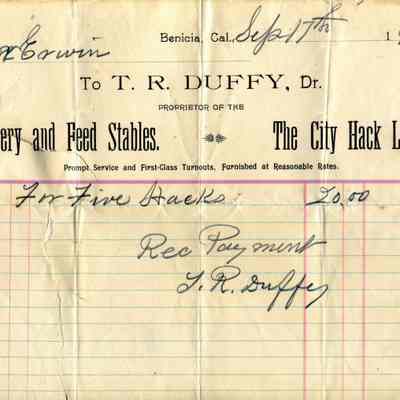 Benicia, Cal., Sep 17th 1
Erwin
To T. R. DUFFY, Dr.
PROPRIETOR OF THE
ery and Feed Stables. The City Hack L
Prompt Service and First-Class Turnouts, Furnished at Reasonable Rates.
For Five Hacks 20.00
Rec Payment
T. R. Duffey